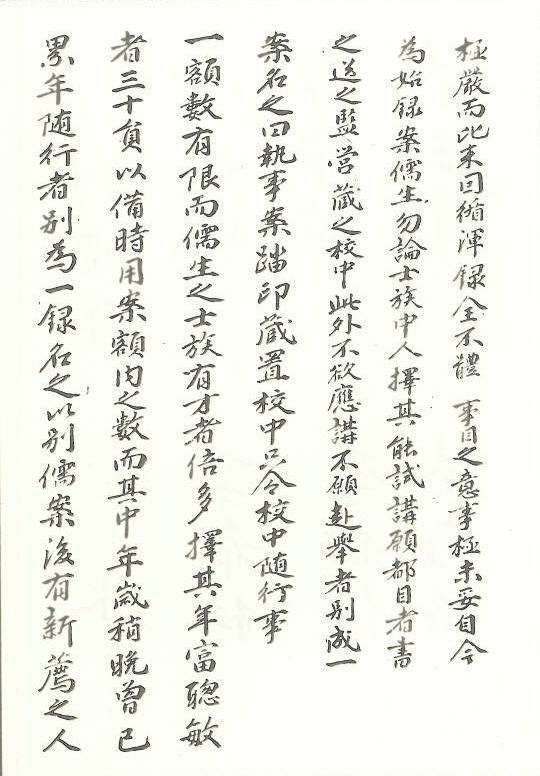 極嚴而此來回循渾録全不體 事目之意事極未妥自今
為始録案儒生勿論士族中人擇其能試講願都目者書
之送之監營藏之校中此外不欲應講不願赴舉者別成一
案名之曰執事案踏印藏置校中只令校中随行事
一額數有限而儒生之士族有才者倍多擇其年富聰敏
者三十負以備時用案額内之數而其中年嵗稍晚曾已
累年随行者別為一録名之以別儒案後有新薦之人